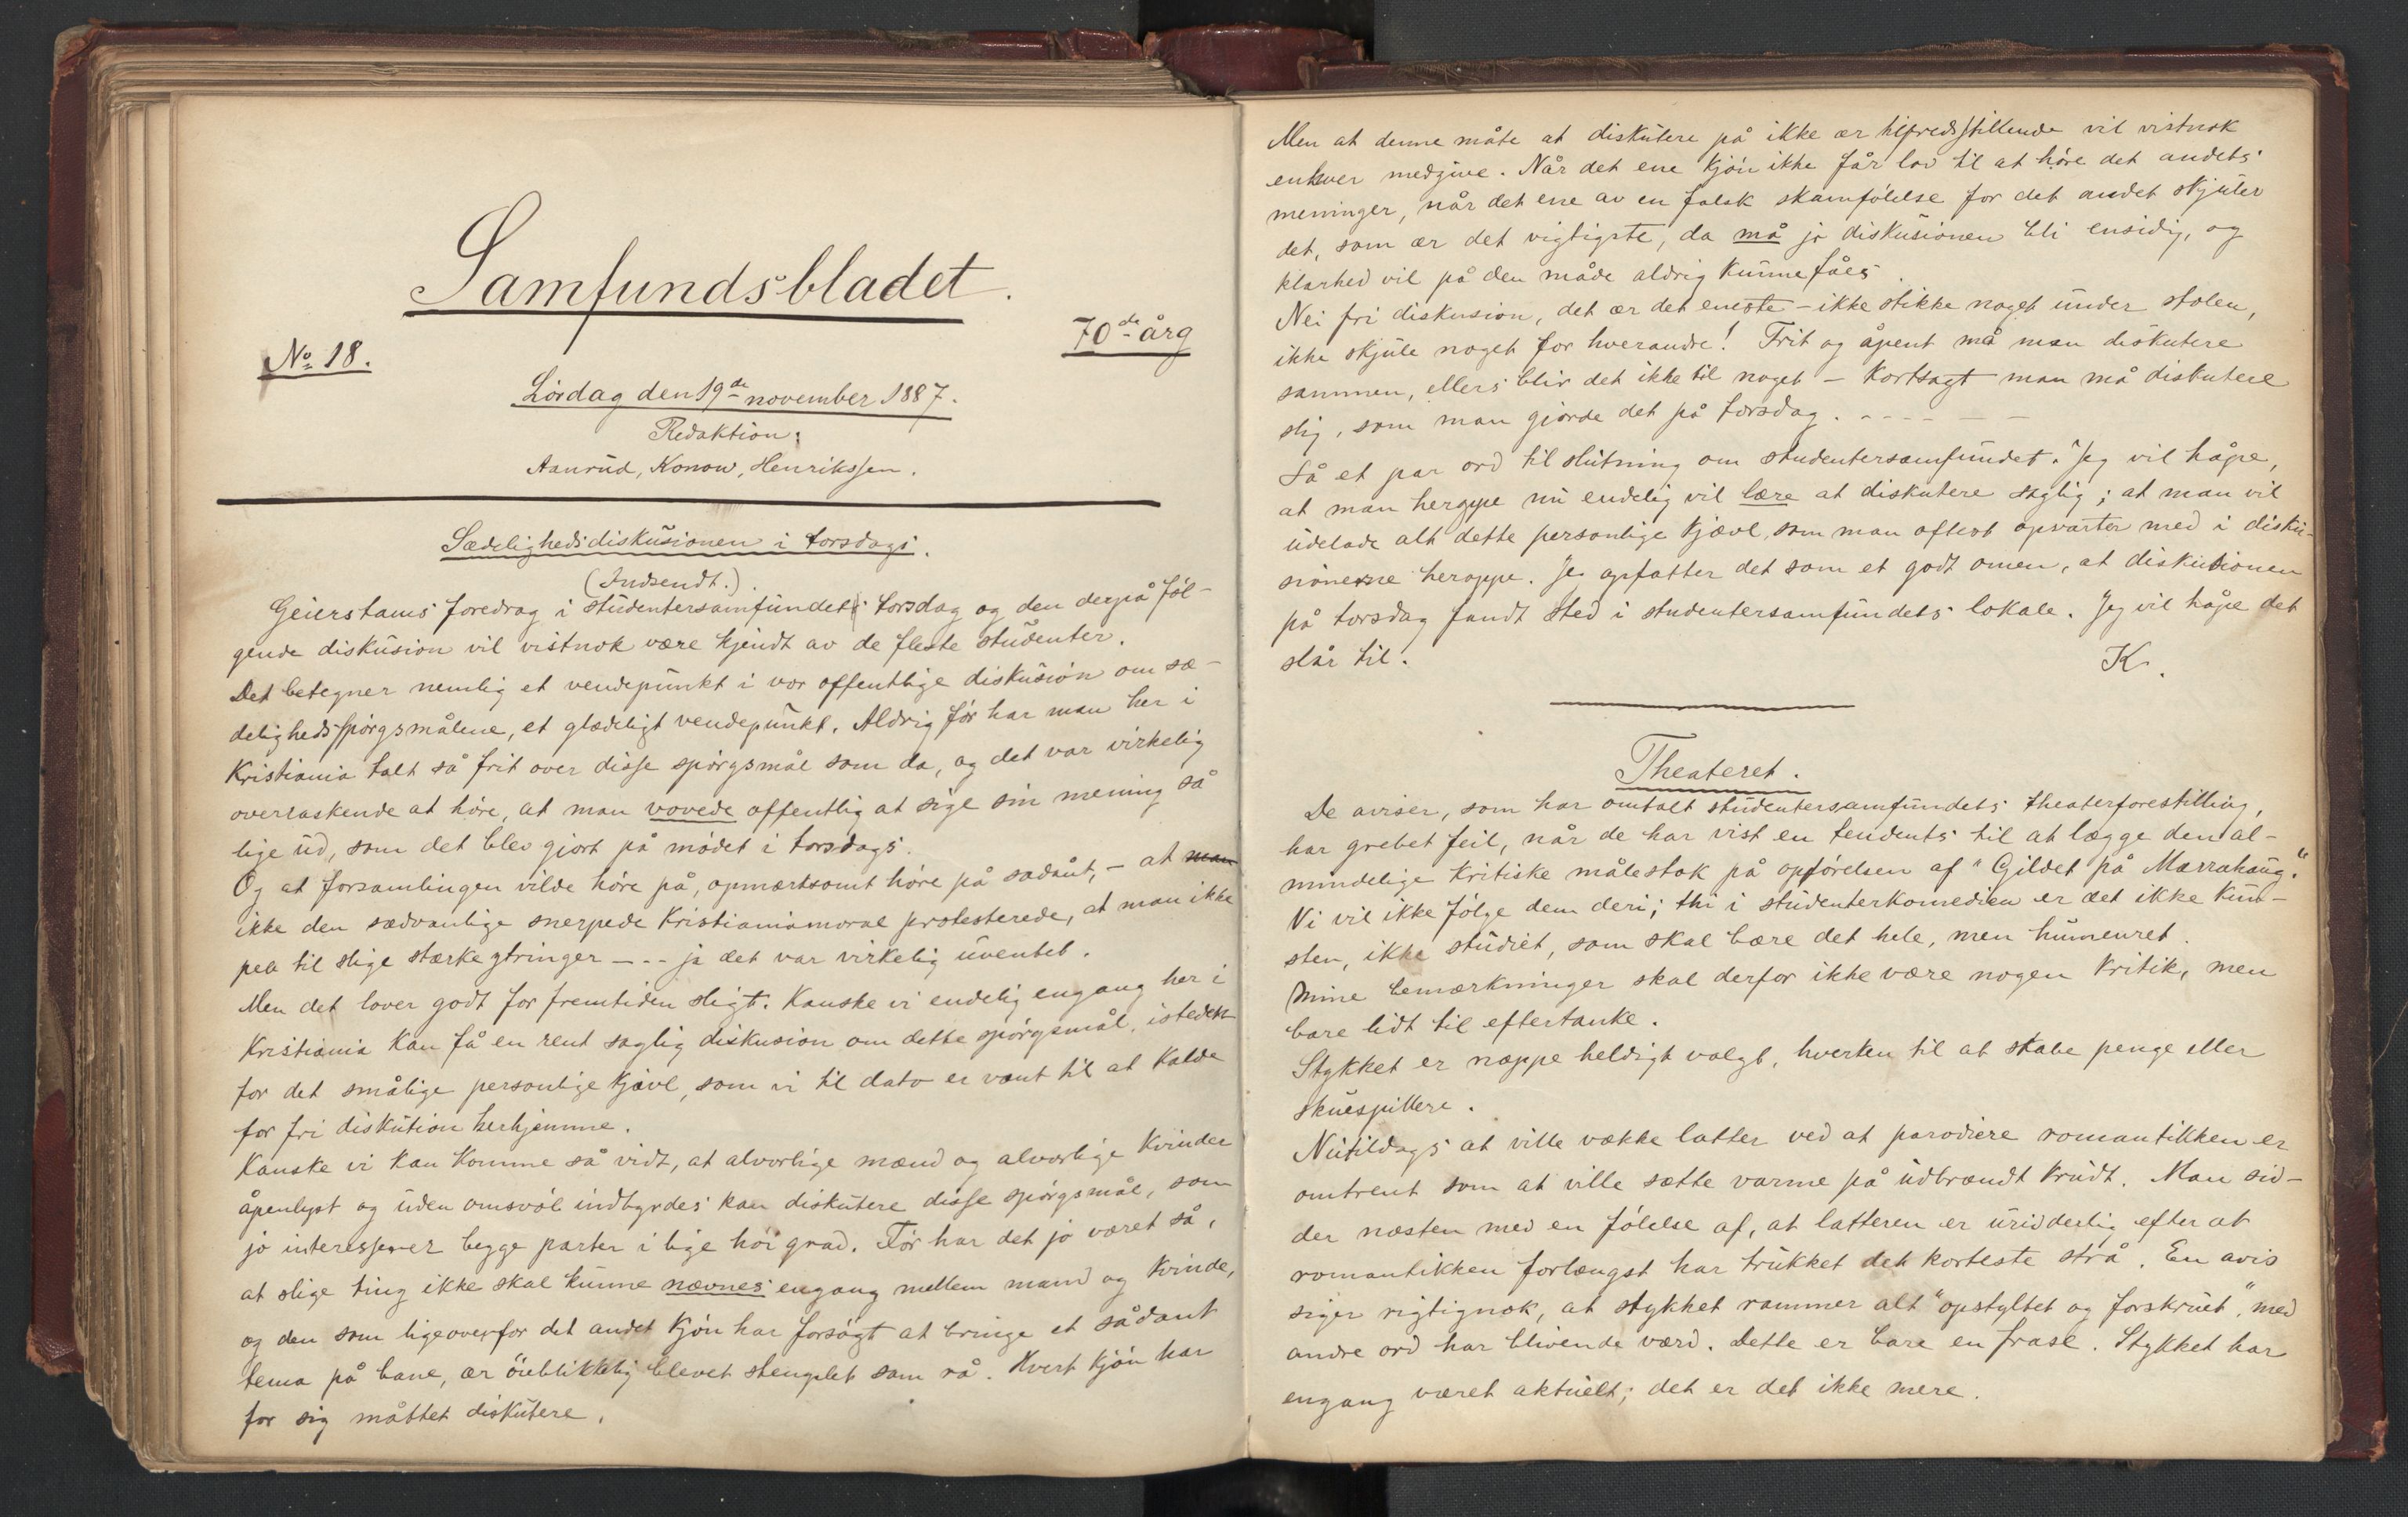 Samfundsbladet.
No 18.
70de årg
Lördag den 19de november 1887.
Redaktion:
Aanrud, Konow, Henrikssen.
Sædelighedsdiskusionen i torsdags.
(Indsendt.).
Geierstams foredrag i studentersamfundet torsdag og den derpå föl-
gende diskusion vil vistnok være kjendt av de fleste studenter.
Det betegner nemlig et vendepunkt i vor offentlige diskusion om sæ-
delighedsspörgsmålene, et glædeligt vendepunkt. Aldrig för har man her i
Kristiania talt så frit over disse spörgsmål som da, og det var virkelig
overraskende at höre, at man vovede offentlig at sige sin mening så
lige ud, som det blev gjort på mödet i torsdags.
Og at forsamlingen vilde höre på, opmærksomt höre på sådant, - at man
ikke den sædvanlige snerpede Kristianiamoral protesterede, at man ikke
peb til slige stærke ytringer - - - ja det var virkelig uventet.
Men det lover godt for fremtiden sligt. Kanske vi endelig engang her i
Kristiania kan få en rent saglig diskusion om dette spörgsmål, isteden
for det smålige personlige kjævl, som vi til dato er vant til at kalde
for fri diskution herhjemme.
Kanske vi kan komme så vidt, at alvorlige mænd og alvorlige kvinder
åpenlyst og uden omsvöb indbyrdes kan diskutere disse spörgsmål, som
jo interesserer begge parter i lige höi grad. För har det jo været så,
at slige ting ikke skal kunne nævnes engang mellem mand og kvinde,
og den som ligeoverfor det andet kjön har forsögt at bringe et sådant
tema på bane, ær öieblikkelig blevet stemplet som rå. Hvert kjön har
for sig måttet diskutere.
Men at denne måte at diskutere på ikke ær tilfredsstillende vil vistnok
enhver medgive. Når det ene kjön ikke får lov til at höre det andets
meninger, når det ene av en falsk skamfölelse for det andet skjuler
det, som ær det vigtigste, da må jo diskusionen bli ensidig, og
klarhed vil på den måde aldrig kunne fåes.
Nei fri diskusion, det ær det eneste - ikke stikke noget under stolen,
ikke skjule noget for hverandre! Frit og åpent må man diskutere
sammen, ellers blir det ikke til noget - kortsagt man må diskutere
slig, som man gjorde det på torsdag. - - - - - -
Så et par ord til slutning om studentersamfundet. Jeg vil håpe,
at man heroppe nu endelig vil lære at diskutere saglig; at man vil
udelade alt dette personlige kjævl, som man oftest opvarter med i disku-
sionerne heroppe. Jeg opfatter det som et godt omen, at diskusionen
på torsdag fandt sted i studentersamfundets lokale. Jeg vil håpe det
slår til.
K.
Theateret.
De aviser, som har omtalt studentersamfundets theaterforestilling,
har grebet feil, når de har vist en tendents til at lægge den al-
mindelige kritiske målestok på opförelsen af "Gildet på Mærrahaug."
Vi vil ikke fölge dem deri; thi i studenterkomedien er det ikke kun-
sten, ikke studiet, som skal bære det hele, men humeuret.
Mine bemærkninger skal derfor ikke være nogen kritik, men
bare lidt til eftertanke.
Stykket er næppe heldigt valgt, hverken til at skabe penge eller
skuespillere.
Nutildags at ville vække latter ved at parodiere romantikken er
omtrent som at ville sætte varme på udbrændt krudt. Man sid-
der næsten med en fölelse af, at latteren er uridderlig efter at
romantikken forlængst har trukket det korteste strå. En avis
siger rigtignok, at stykket rammer alt "opstyltet og forskruet," med
andre ord har blivende værd. Dette er bare en frase. Stykket har
engang været aktuelt; det er det ikke mere.